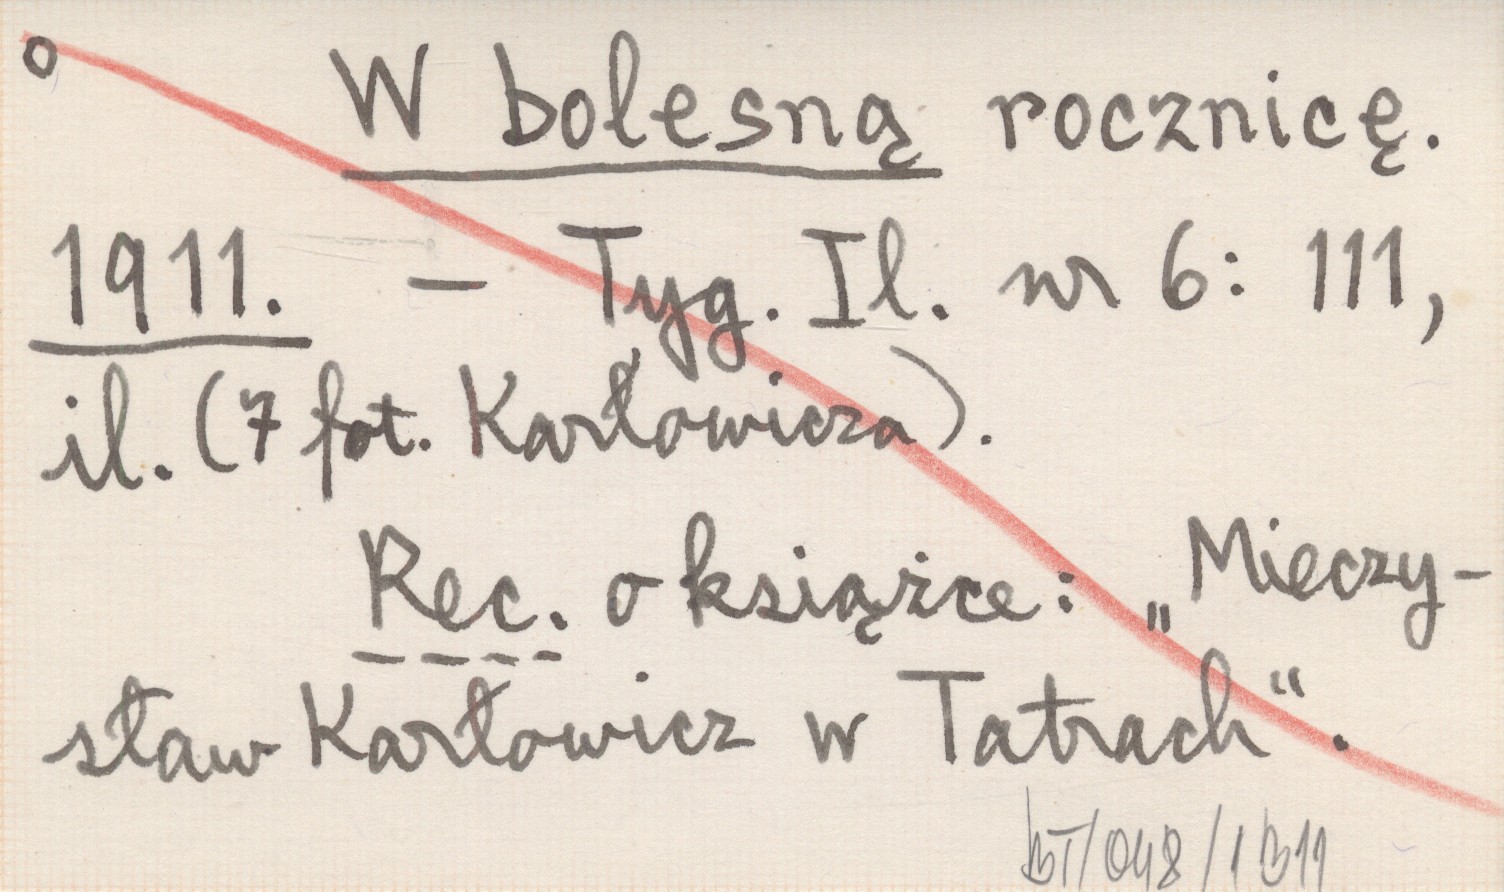 o W bolesną rocznicę.
1911. – Tyg. Il. nr 6: 111,
il. (7 fot. Karłowicza).
Rec. o książce: „Mieczy-
sław Karłowicz w Tatrach“.